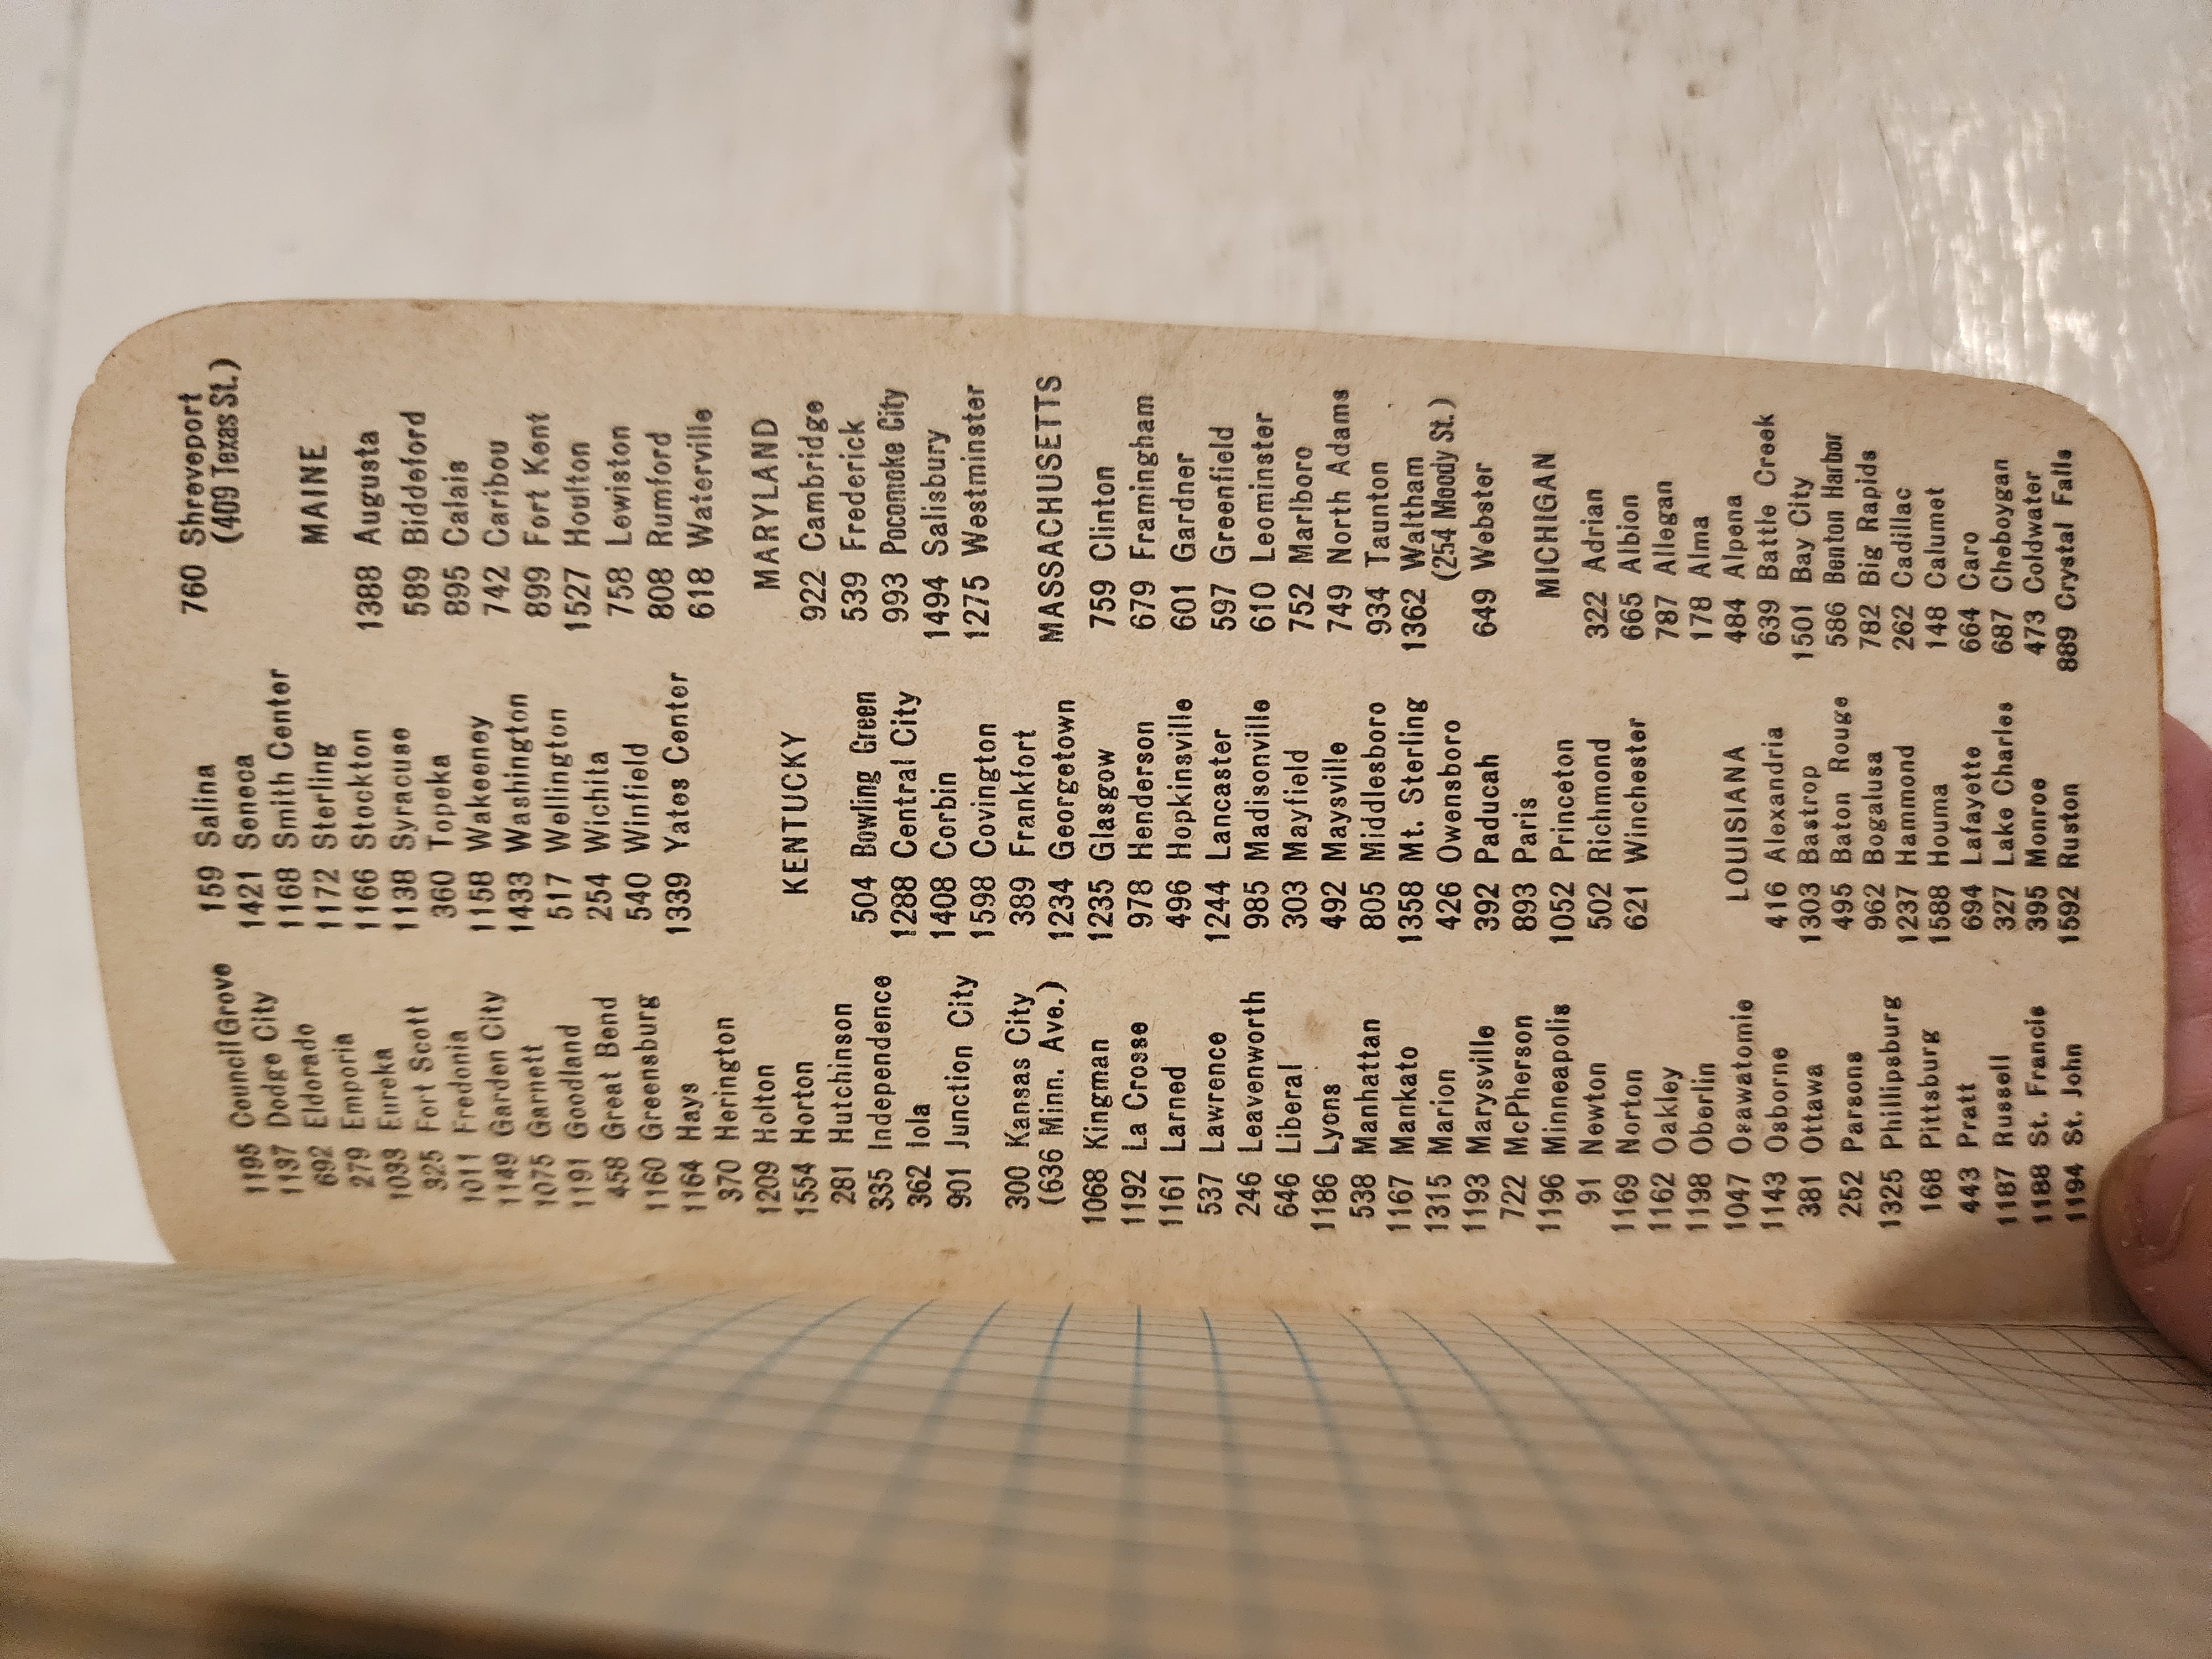 1195 Council Grove
1137 Dodge City
692 Eldorado
279 Emporia
1033 Eureka
325 Fort Scott
1011 Fredonia
1149 Garden City
1075 Garnett
1191 Goodland
458 Great Bend
1160 Greensburg
1164 Hays
370 Herington
1209 Holton
1554 Horton
281 Hutchinson
335 Independence
362 Iola
901 Junction City
300 Kansas City
(636 Minn. Ave.)
1068 Kingman
1192 La Crosse
1161 Larned
537 Lawrence
246 Leavenworth
646 Liberal
1186 Lyons
538 Manhattan
1167 Mankato
1315 Marion
1193 Marysville
722 McPherson
1196 Minneapolis
91 Newton
1169 Norton
1162 Oakley
1198 Oberlin
1047 Osawatomie
1143 Osborne
381 Ottawa
252 Parsons
1325 Phillipsburg
168 Pittsburg
443 Pratt
1187 Russell
1188 St. Francis
1194 St. John
159 Salina
1421 Seneca
1168 Smith Center
1172 Sterling
1166 Stockton
1138 Syracuse
360 Topeka
1158 Wakeeney
1433 Washington
517 Wellington
254 Wichita
540 Winfield
1339 Yates Center
KENTUCKY
504 Bowling Green
1288 Central City
1408 Corbin
1598 Covington
389 Frankfort
1234 Georgetown
1235 Glasgow
978 Henderson
496 Hopkinsville
1244 Lancaster
985 Madisonville
303 Mayfield
492 Maysville
805 Middlesboro
1358 Mt. Sterling
426 Owensboro
392 Paducah
893 Paris
1052 Princeton
502 Richmond
621 Winchester
LOUISIANA
416 Alexandria
1303 Bastrop
495 Baton Rouge
962 Bogalusa
1237 Hammond
1588 Houma
694 Lafayette
327 Lake Charles
395 Monroe
1592 Ruston
760 Shreveport
(409 Texas St.)
MAINE
1388 Augusta
589 Biddeford
895 Calais
742 Caribou
899 Fort Kent
1527 Houlton
758 Lewiston
808 Rumford
618 Waterville
MARYLAND
922 Cambridge
539 Frederick
993 Pocomoke City
1494 Salisbury
1275 Westminster
MASSACHUSETTS
759 Clinton
679 Framingham
601 Gardner
597 Greenfield
610 Leominster
752 Marlboro
749 North Adams
934 Taunton
1362 Waltham
(254 Moody St.)
649 Webster
MICHIGAN
322 Adrian
665 Albion
787 Allegan
178 Alma
484 Alpena
639 Battle Creek
1501 Bay City
586 Benton Harbor
782 Big Rapids
262 Cadillac
148 Calumet
664 Caro
687 Cheboygan
473 Coldwater
889 Crystal Falls